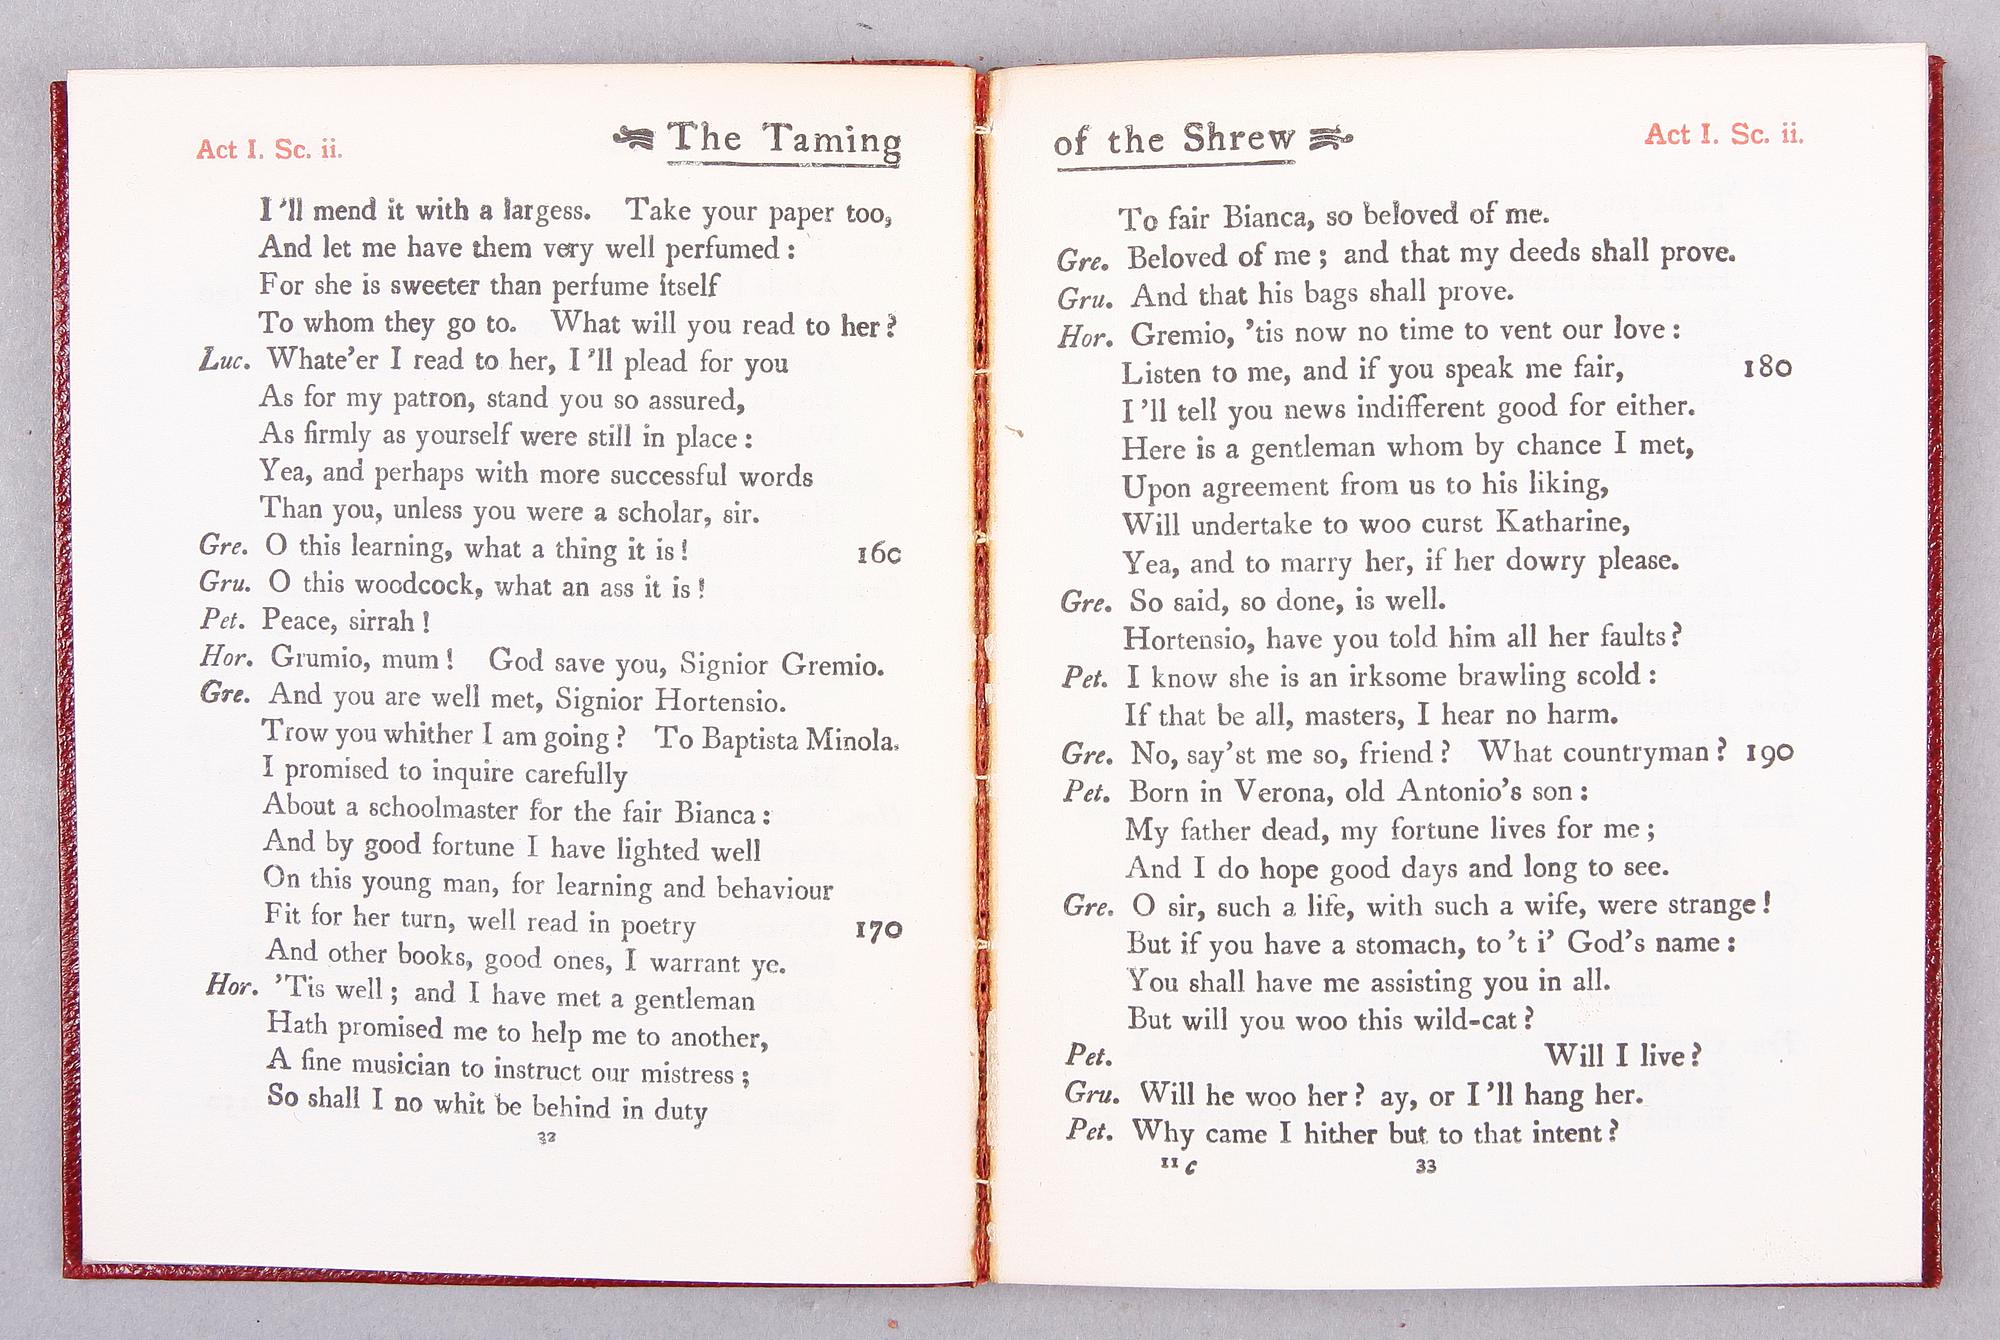 Act I. Sc. ii.
The Taming
I'll mend it with a largess. Take your paper too,
And let me have them very well perfumed:
For she is sweeter than perfume itself
To whom they go to. What will you read to her?
Luc. Whate'er I read to her, I'll plead for you
As for my patron, stand you so assured,
As firmly as yourself were still in place:
Yea, and perhaps with more successful words
Than you, unless you were a scholar, sir.
Gre. O this learning, what a thing it is! 160
Gru. O this woodcock, what an ass it is!
Pet. Peace, sirrah!
Hor. Grumio, mum! God save you, Signior Gremio.
Gre. And you are well met, Signior Hortensio.
Trow you whither I am going? To Baptista Minola.
I promised to inquire carefully
About a schoolmaster for the fair Bianca:
And by good fortune I have lighted well
On this young man, for learning and behaviour
Fit for her turn, well read in poetry 170
And other books, good ones, I warrant ye.
Hor. 'Tis well; and I have met a gentleman
Hath promised me to help me to another,
A fine musician to instruct our mistress;
So shall I no whit be behind in duty
32
of the Shrew
Act I. Sc. ii.
To fair Bianca, so beloved of me.
Gre. Beloved of me; and that my deeds shall prove.
Gru. And that his bags shall prove.
Hor. Gremio, 'tis now no time to vent our love:
Listen to me, and if you speak me fair, 180
I'll tell you news indifferent good for either.
Here is a gentleman whom by chance I met,
Upon agreement from us to his liking,
Will undertake to woo curst Katharine,
Yea, and to marry her, if her dowry please.
Gre. So said, so done, is well.
Hortensio, have you told him all her faults?
Pet. I know she is an irksome brawling scold:
If that be all, masters, I hear no harm.
Gre. No, say'st me so, friend? What countryman? 190
Pet. Born in Verona, old Antonio's son:
My father dead, my fortune lives for me;
And I do hope good days and long to see.
Gre. O sir, such a life, with such a wife, were strange!
But if you have a stomach, to't i' God's name:
You shall have me assisting you in all.
But will you woo this wild-cat?
Pet. Will I live?
Gru. Will he woo her? ay, or I'll hang her.
Pet. Why came I hither but to that intent?
11 c 33